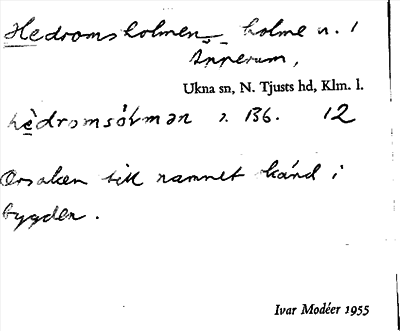 Hedromsholmen holme n. i
Ånnerum,
Ukna sn, N. Tjusts hd, Klm. l.
hèdromsólmən s. 136. 12
Orsaken till namnet känd i
bygden.
Ivar Modéer 1955